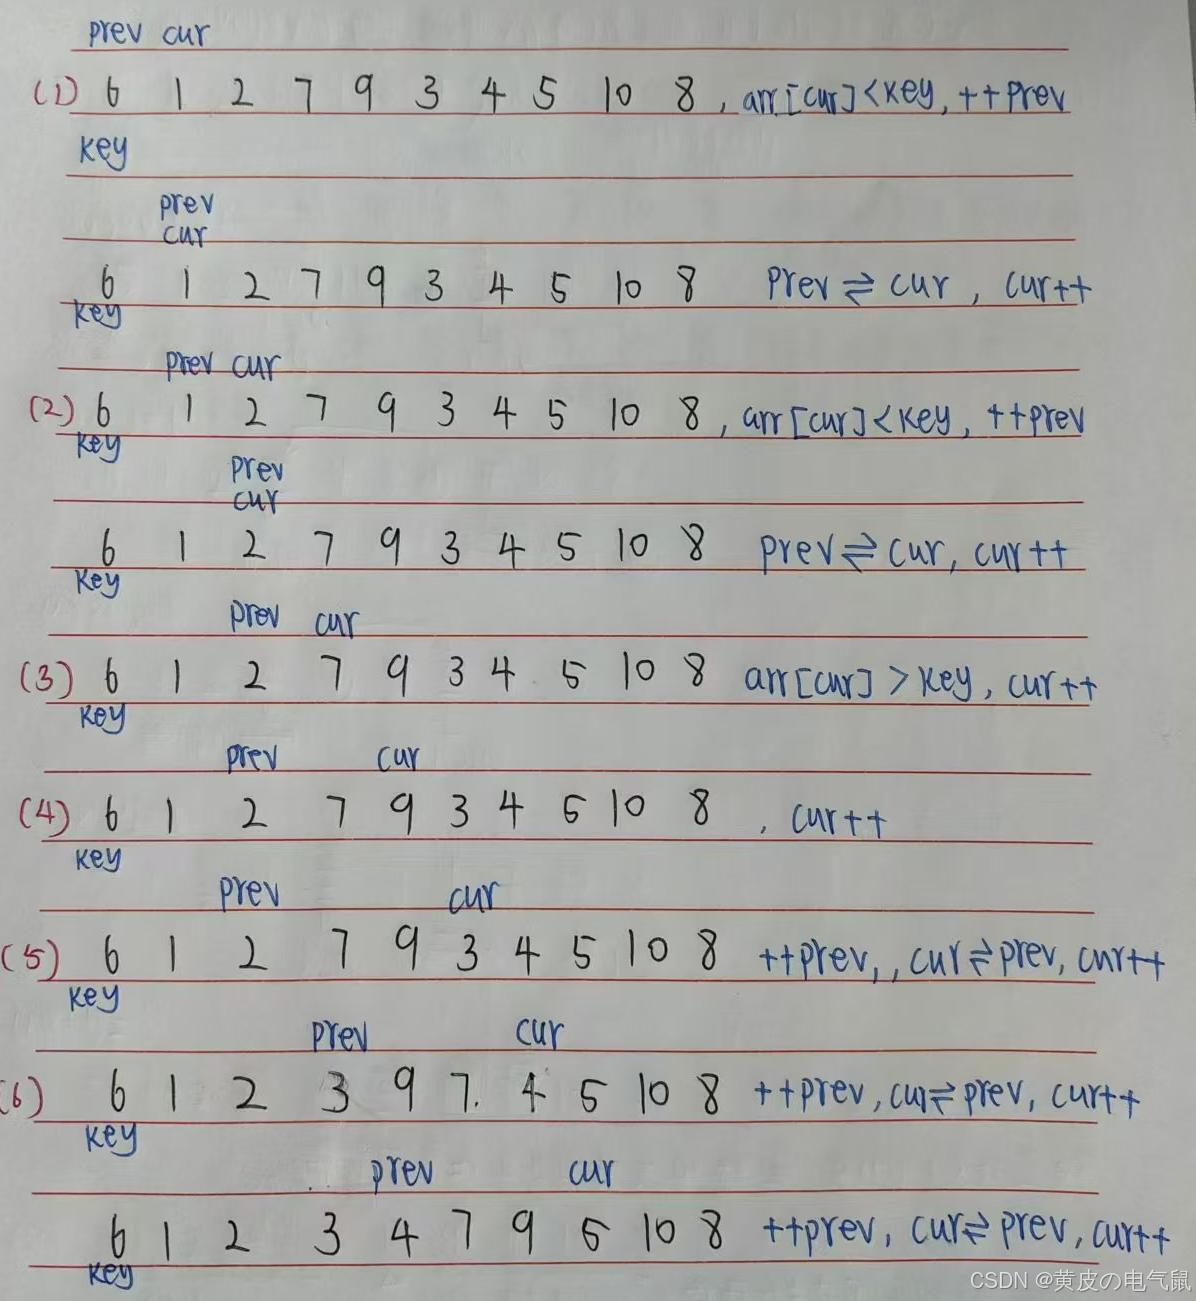 prev cur
(1) 6 1 2 7 9 3 4 5 10 8 , arr[cur]<key, ++prev
key
prev
cur
6 1 2 7 9 3 4 5 10 8 prev⇌cur , cur++
key
prev cur
(2) 6 1 2 7 9 3 4 5 10 8 , arr[cur]<key, ++prev
key
prev
cur
6 1 2 7 9 3 4 5 10 8 prev⇌cur, cur++
key
prev cur
(3) 6 1 2 7 9 3 4 5 10 8 arr[cur] >key, cur++
key
prev cur
(4) 6 1 2 7 9 3 4 5 10 8 , cur++
key
prev cur
(5) 6 1 2 7 9 3 4 5 10 8 ++prev,, cur⇌prev, cur++
key
prev cur
(6) 6 1 2 3 9 7. 4 5 10 8 ++prev, cur⇌prev, cur++
key
prev cur
6 1 2 3 4 7 9 5 10 8 ++prev, cur⇌prev, cur++
key
CSDN @黄皮の电气鼠